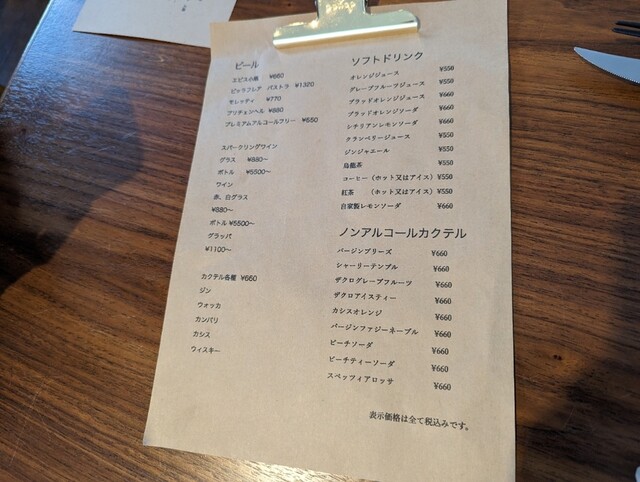 ビール
エビス小瓶 ¥660
ビッラフレア パストラ ¥1320
モレッティ ¥770
アリチェンヘル ¥880
プレミアムアルコールフリー ¥550
スパークリングワイン
グラス ¥880～
ボトル ¥5500～
ワイン
赤、白グラス
¥880～
ボトル ¥5500～
グラッパ
¥1100～
カクテル各種 ¥660
ジン
ウォッカ
カンパリ
カシス
ウィスキー
ソフトドリンク
オレンジジュース ¥550
グレープフルーツジュース ¥550
ブラッドオレンジジュース ¥660
ブラッドオレンジソーダ ¥660
シチリアンレモンソーダ ¥660
クランベリージュース ¥550
ジンジャエール ¥550
烏龍茶 ¥550
コーヒー (ホット又はアイス) ¥550
紅茶 (ホット又はアイス) ¥550
自家製レモンソーダ ¥660
ノンアルコールカクテル
バージンブリーズ ¥660
シャーリーテンプル ¥660
ザクログレープフルーツ ¥660
ザクロアイスティー ¥660
カシスオレンジ ¥660
バージンファジーネーブル ¥660
ピーチソーダ ¥660
ピーチティーソーダ ¥660
スペッフィアロッサ ¥660
表示価格は全て税込みです。